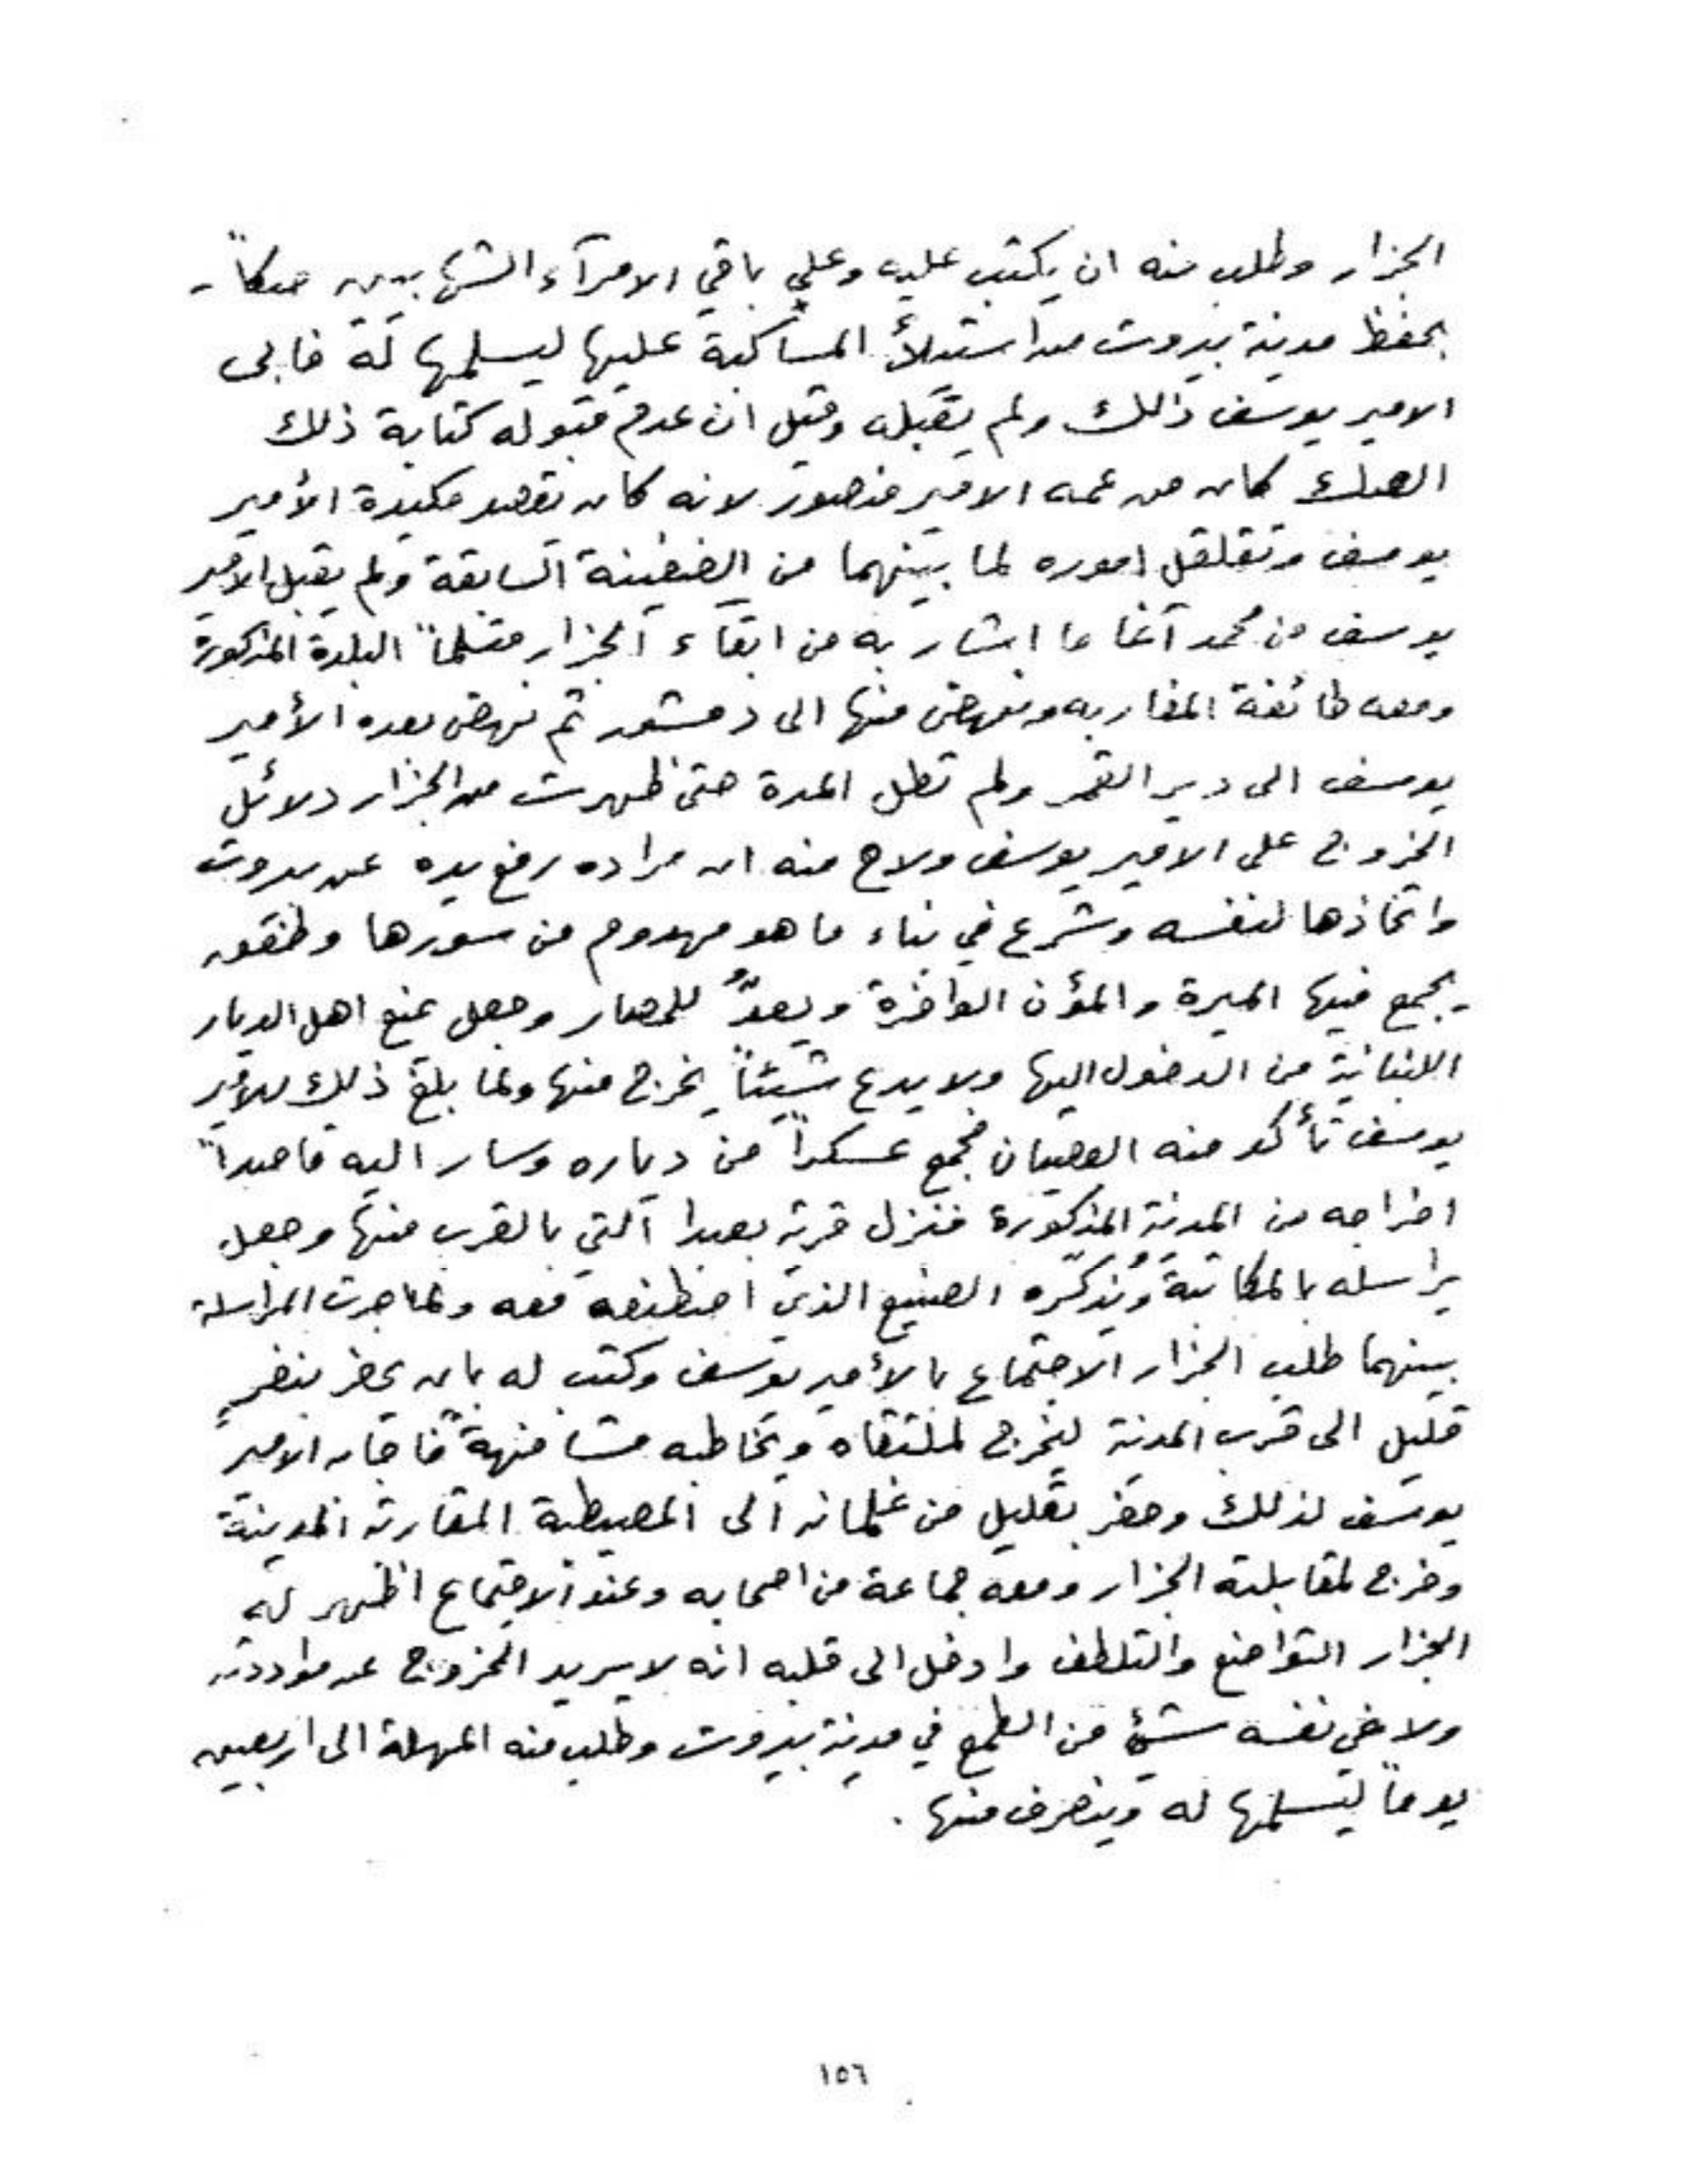 الجزار وطلب منه ان يكتب عليه وعلي باقي الامرآء الشهابيين صكاً
بحفظ مدينة بيروت من استيلأ المساكبة عليها ليسلمها له فابى
الامير يوسف ذالك ولم يقبله وقيل ان عدم قبوله كتابة ذلك
الصك كان من عمه الامير منصور لانه كان يقصد مكيدة الأمير
يوسف وتقلقل اموره لما بينهما من الضغينة السابقة ولم يقبل الامير
يوسف من محمد آغا ما اشار به من ابقاء الجزار متسلماً البلدة المذكورة
ومعه طائفة المغاربه ونهض منها الى دمشق ثم نهض بعده الأمير
يوسف الى دير القمر ولم تطل المدة حتى ظهرت من الجزار دلائل
الخروج على الامير يوسف ولاح منه ان مراده رفع يده عن بيروت
واتخاذها لنفسه وشرع في بناء ما هو مهدوم من سورها وطفق
يجمع فيها الميرة والمؤن الوافرة ويعدُّ للحصار وجعل يمنع اهل الديار
اللبنانية من الدخول اليها ولا يدع شيئاً يخرج منها ولما بلغ ذلك للامير
يوسف تأكد منه العصيان فجمع عسكراً من دياره وسار اليه قاصداً
اخراجه من المدينة المذكورة فنزل قرية بعبدا التي بالقرب منها وجعل
يراسله بالمكاتبة ويُذكّره الصنيع الذي اصطنعه معه ولما جرت المراسلة
بينهما طلب الجزار الاجتماع بالأمير يوسف وكتب له بان يحضر بنفرٍ
قليل الى قرب المدينة ليخرج لملتقاه ويخاطبه مشافهةً فاجابه الامير
يوسف لذلك وحضر بقليل من غلمانه الى المصيطبة المقاربة المدينة
وخرج لمقابلته الجزار ومعه جماعة من اصحابه وعند الاجتماع اظهر له
الجزار التواضع والتلطف وادخل الى قلبه انه لا يريد الخروج عن مواددته
ولا في نفسه شئ من الطمع في مدينة بيروت وطلب منه المهلة الى اربعين
يوماً ليسلمها له وينصرف منها .
١٥٦